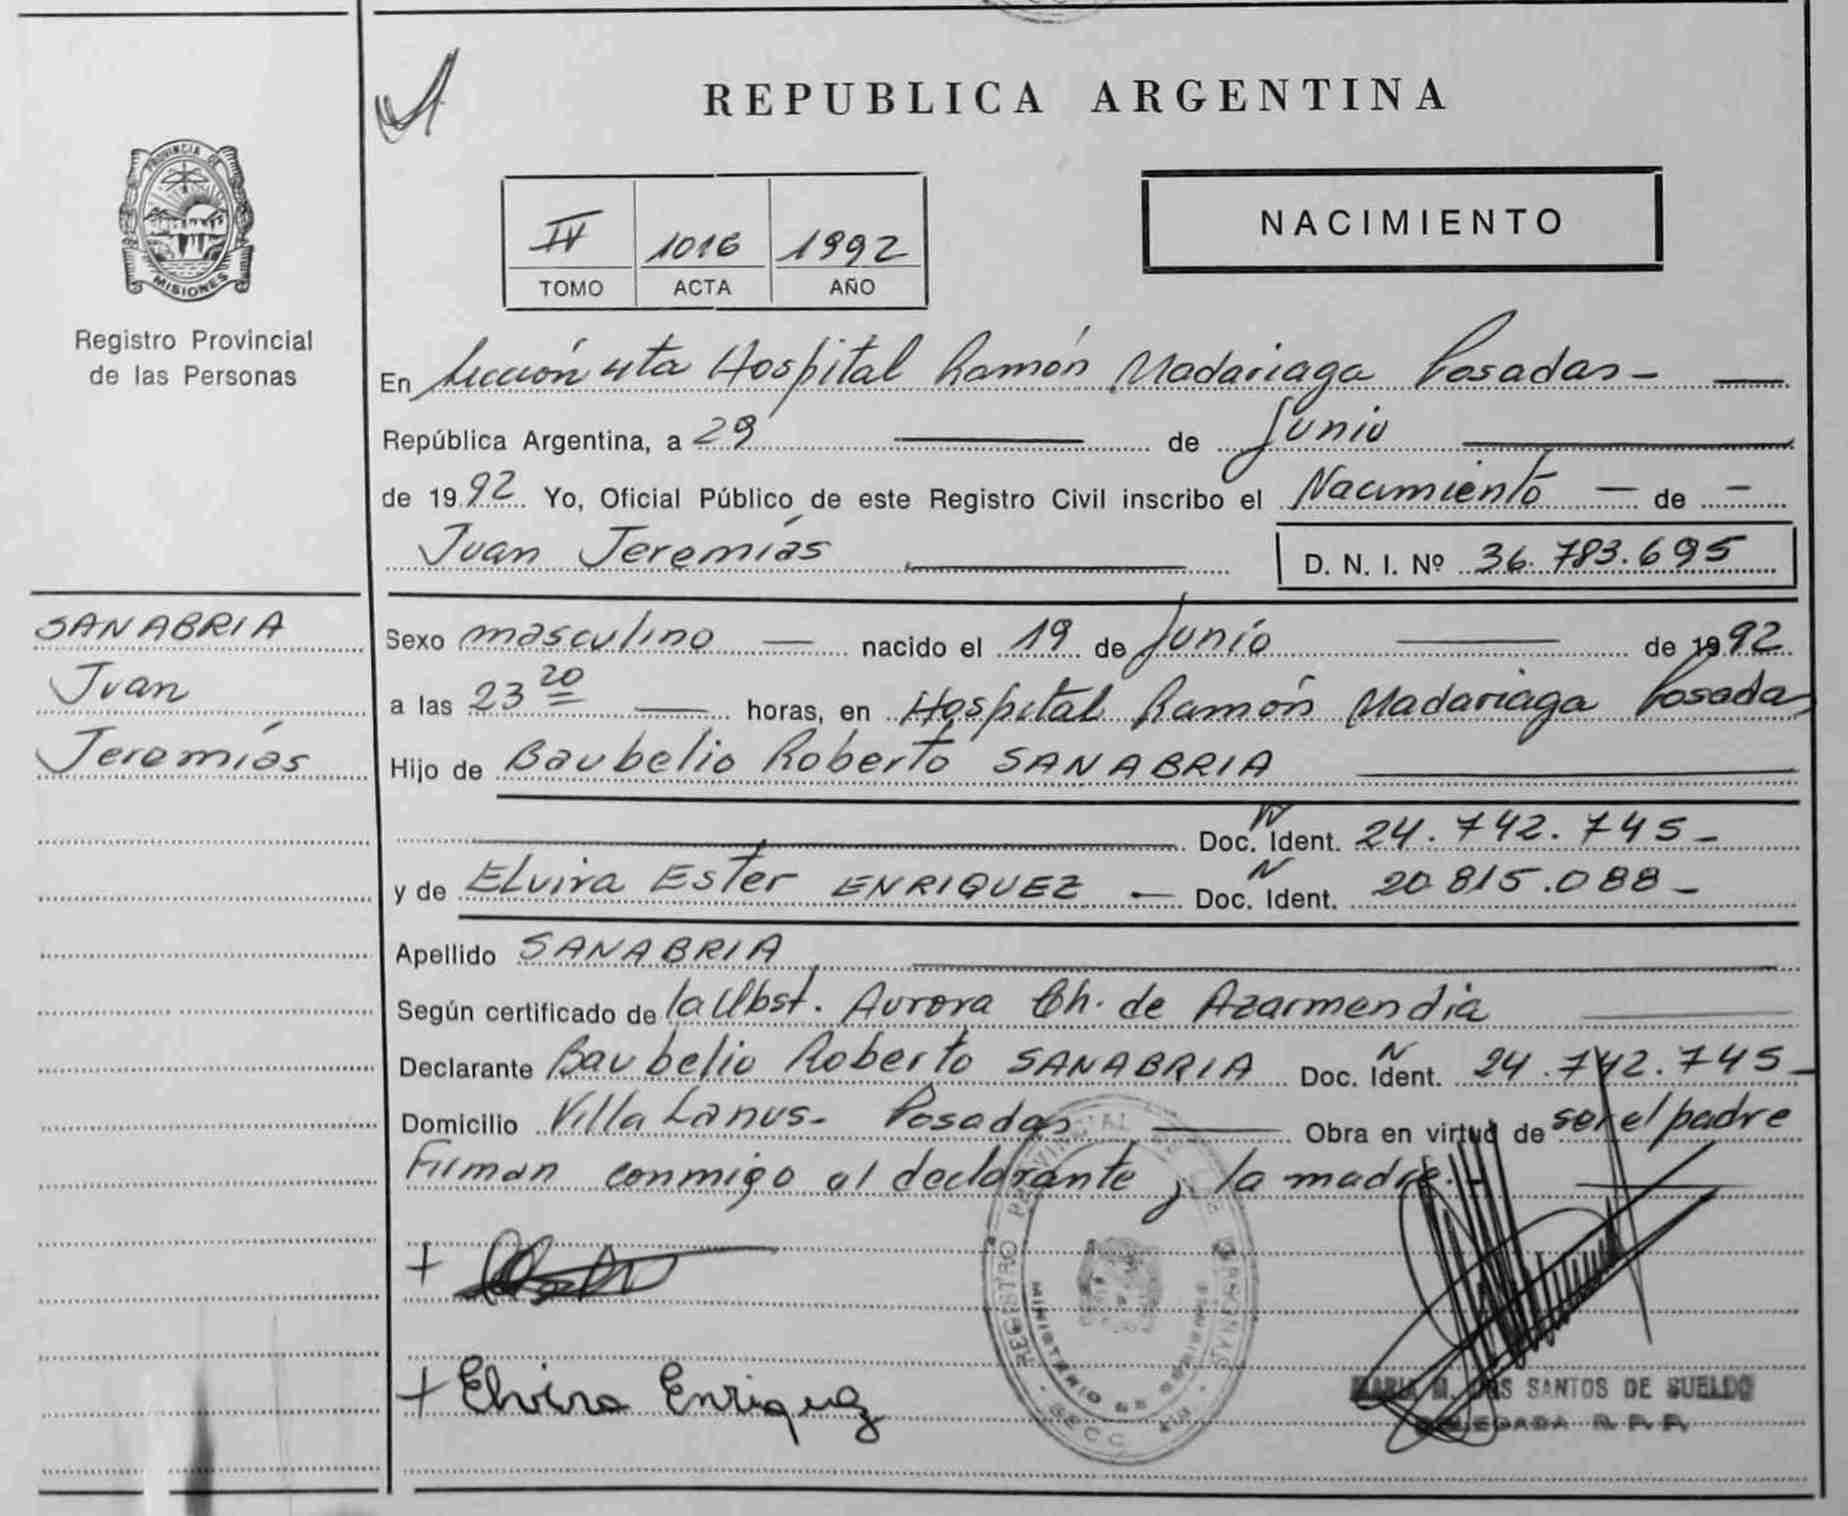 PROVINCIA DE
MISIONES
Registro Provincial
de las Personas
SANABRIA
Juan
Jeremías
REPUBLICA ARGENTINA
IV 1016 1992
TOMO ACTA AÑO
NACIMIENTO
En Sección 4ta Hospital Ramón Madariaga Posadas -
República Argentina, a 29 de Junio
de 1992 Yo, Oficial Público de este Registro Civil inscribo el Nacimiento - de -
Juan Jeremías D. N. I. Nº 36.783.695
Sexo masculino — nacido el 19 de Junio de 1992
a las 23 20 horas, en Hospital Ramón Madariaga Posadas
Hijo de Baubelio Roberto SANABRIA
Doc. Ident. 24.742.745 -
y de Elvira Ester ENRIQUEZ — Doc. Ident. 20.815.088 -
Apellido SANABRIA
Según certificado de la Obst. Aurora Ch. de Azarmendia
Declarante Baubelio Roberto SANABRIA Doc. Ident. 24.742.745 -
Domicilio Villa Lanus - Posadas — Obra en virtud de ser el padre
Firman conmigo el declarante y la madre.
+
+ Elvira Enriquez
REGISTRO PROVINCIAL DE LAS PERSONAS
MINISTERIO DE GOBIERNO
SECC
MARIA M. DOS SANTOS DE SUELDO
DELEGADA R. P. P.